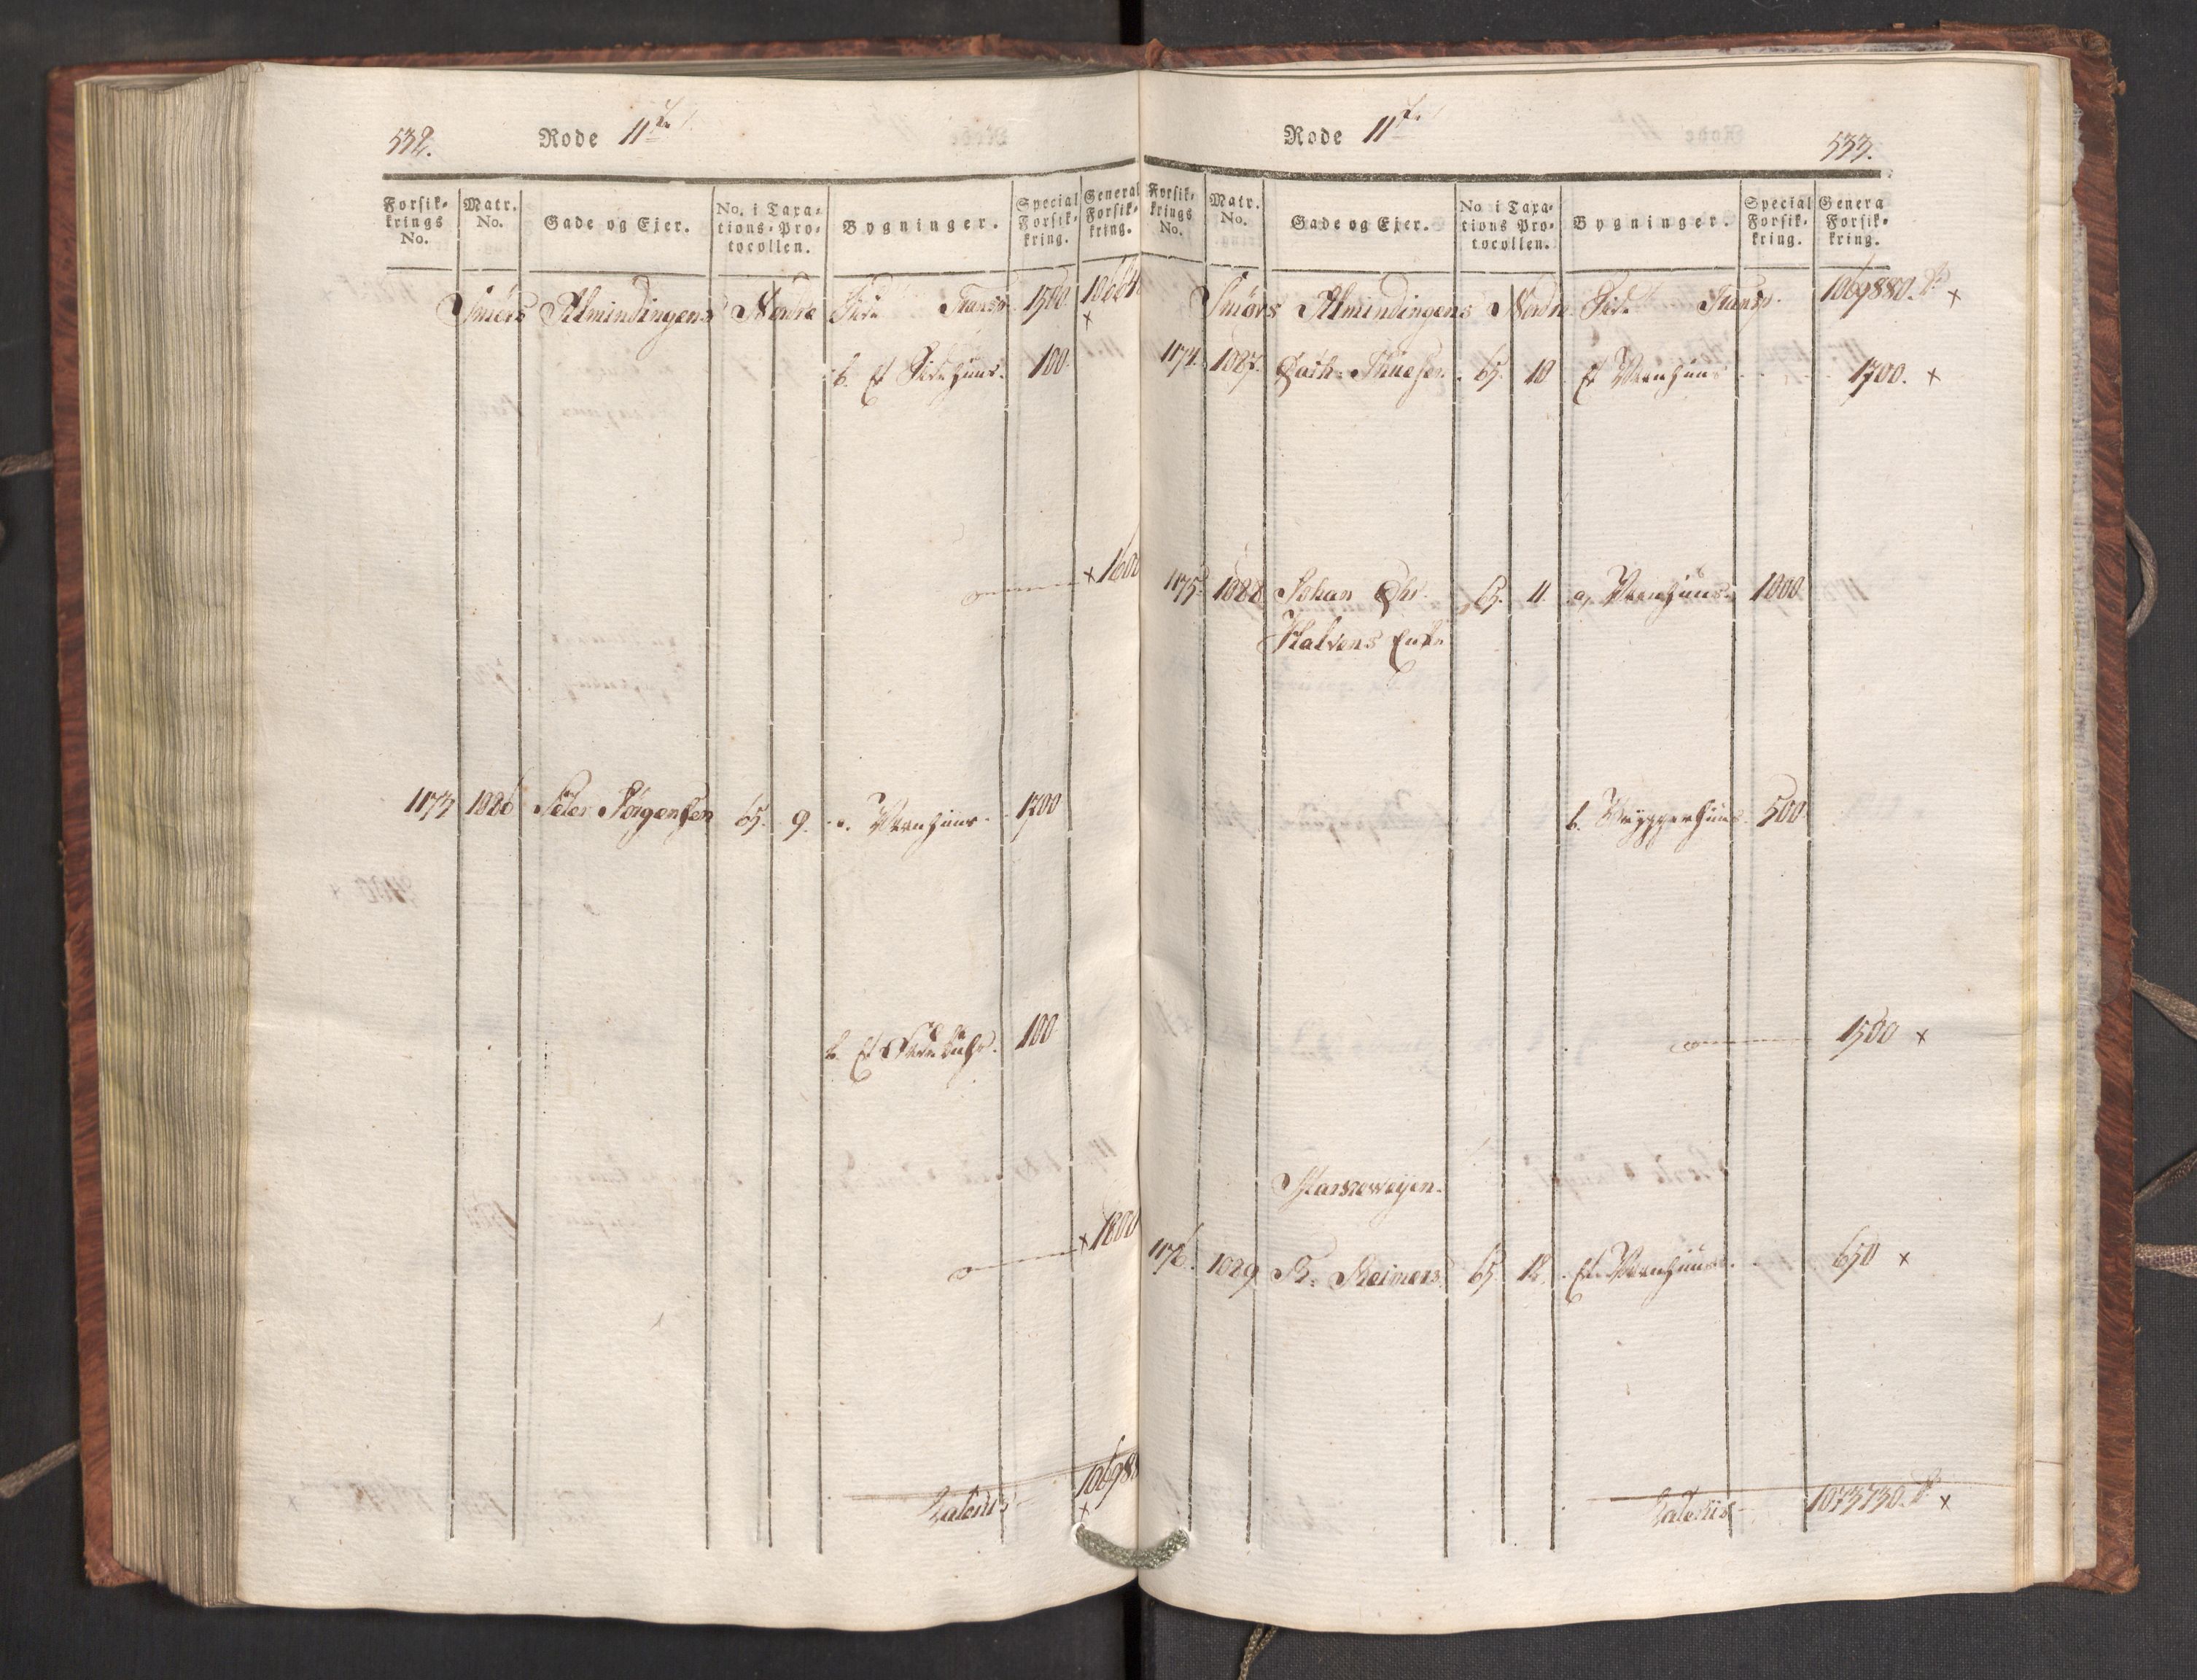 532.
Rode 11te
Forsik-
krings
No.
Matr.
No.
Gade og Ejer.
No. i Taxa-
tions-Pro-
tocollen.
Bygninger.
Special
Forsik-
kring.
General
Forsik-
kring.
Smörs Almindingens Nordre Side Transp. 1500. 10664
b. Et Sidehuus. 100.
x 1600
1173 1086 Peter Jörgensen 65. 9. a. Vaanhuus. 1700
b. Et 100
x 1800
Lateris 106988
x
Rode 11te
533.
Forsik-
krings
No.
Matr.
No.
Gade og Ejer.
No. i Taxa-
tions Pro-
tocollen.
Bygninger.
Special
Forsik-
kring.
Genera
Forsik-
kring.
Smörs Almindingens Nordre Side Transp. 1069880. x
1174. 1087. Cath. 65. 10 Et Vaanhuus 1700. x
1175. 1088 Johan Chr. 65. 11. a, Vaanhuus. 1000
Kalvens Enke
b. Bryggerhuus. 500
1500 x
Markeweyen.
1176. 1089 B. Reimers 65. 12. Et Vaanhuus. 650 x
Lateris 1073730. x